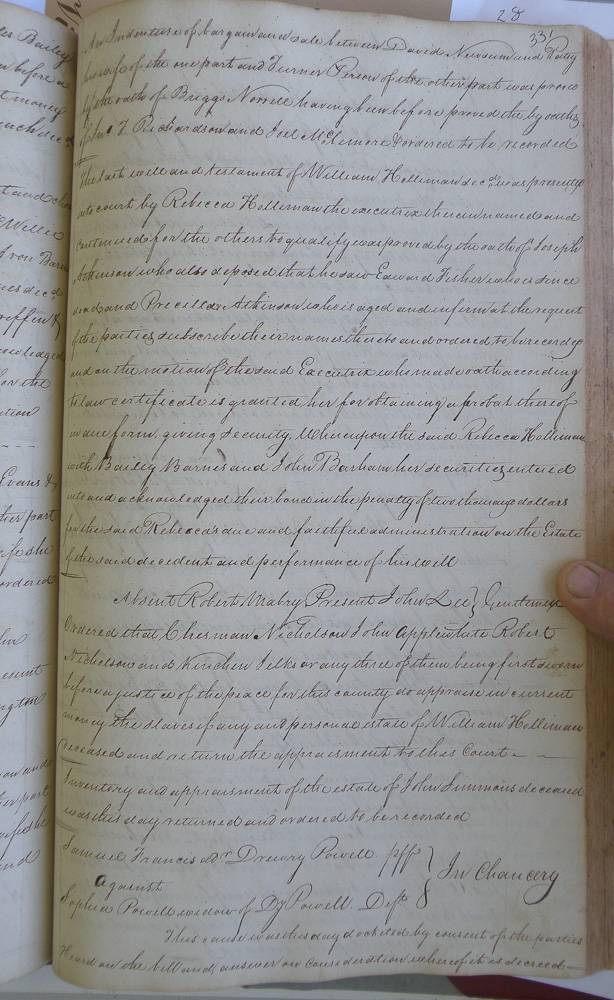 28
331
An Indenture of bargain and sale between David Newsum and Patsy
his wife of the one part and Turner Person of the other part was proved
by the oath of Briggs Norvell having been before proved the by oaths
of T Richardson and Joel McLemore & ordered to be recorded
The last will and testament of William Holliman decd. was presented
into court by Rebecca Holliman the executrix therein named and
continued for the others to qualify was proved by the oath of Joseph
Atkinson who also deposed that he saw Edward Fisher who is since
dead and Precilla Atkinson who is aged and infirm at the request
of the parties subscribe their names thereto and ordered to be recorded
and on the motion of the said Executrix who made oath according
to law certificate is granted her for obtaining a probat thereof
in due form, giving security, Whereupon the said Rebecca Holliman
with Bailey Barnes and John Barham her securities entered
into and acknowledged their bond in the penalty of two thousand dollars
for the said Rebecca's due and faithful administration on the Estate
of the said decedent and performance of his will
Absent Robert Mabry Present John Lee } Gentlemen
Ordered that Chesman Nicholson John Applewhite Robert
Nicholson and Kinchen Jelks or any three of them being first sworn
before a justice of the peace for this county do appraise in current
money the slaves if any and personal estate of William Holliman
deceased and return the appraisment to this Court
Inventory and appraisment of the estate of John Simmons deceased
was this day returned and ordered to be recorded
Samuel Francis adr Drewry Powell plff
against } In Chancery
Sophia Powell widow of Dy Powell Deft
This cause was this day docketed by consent of the parties
Heard on the bill and answer on consideration whereof it is decreed